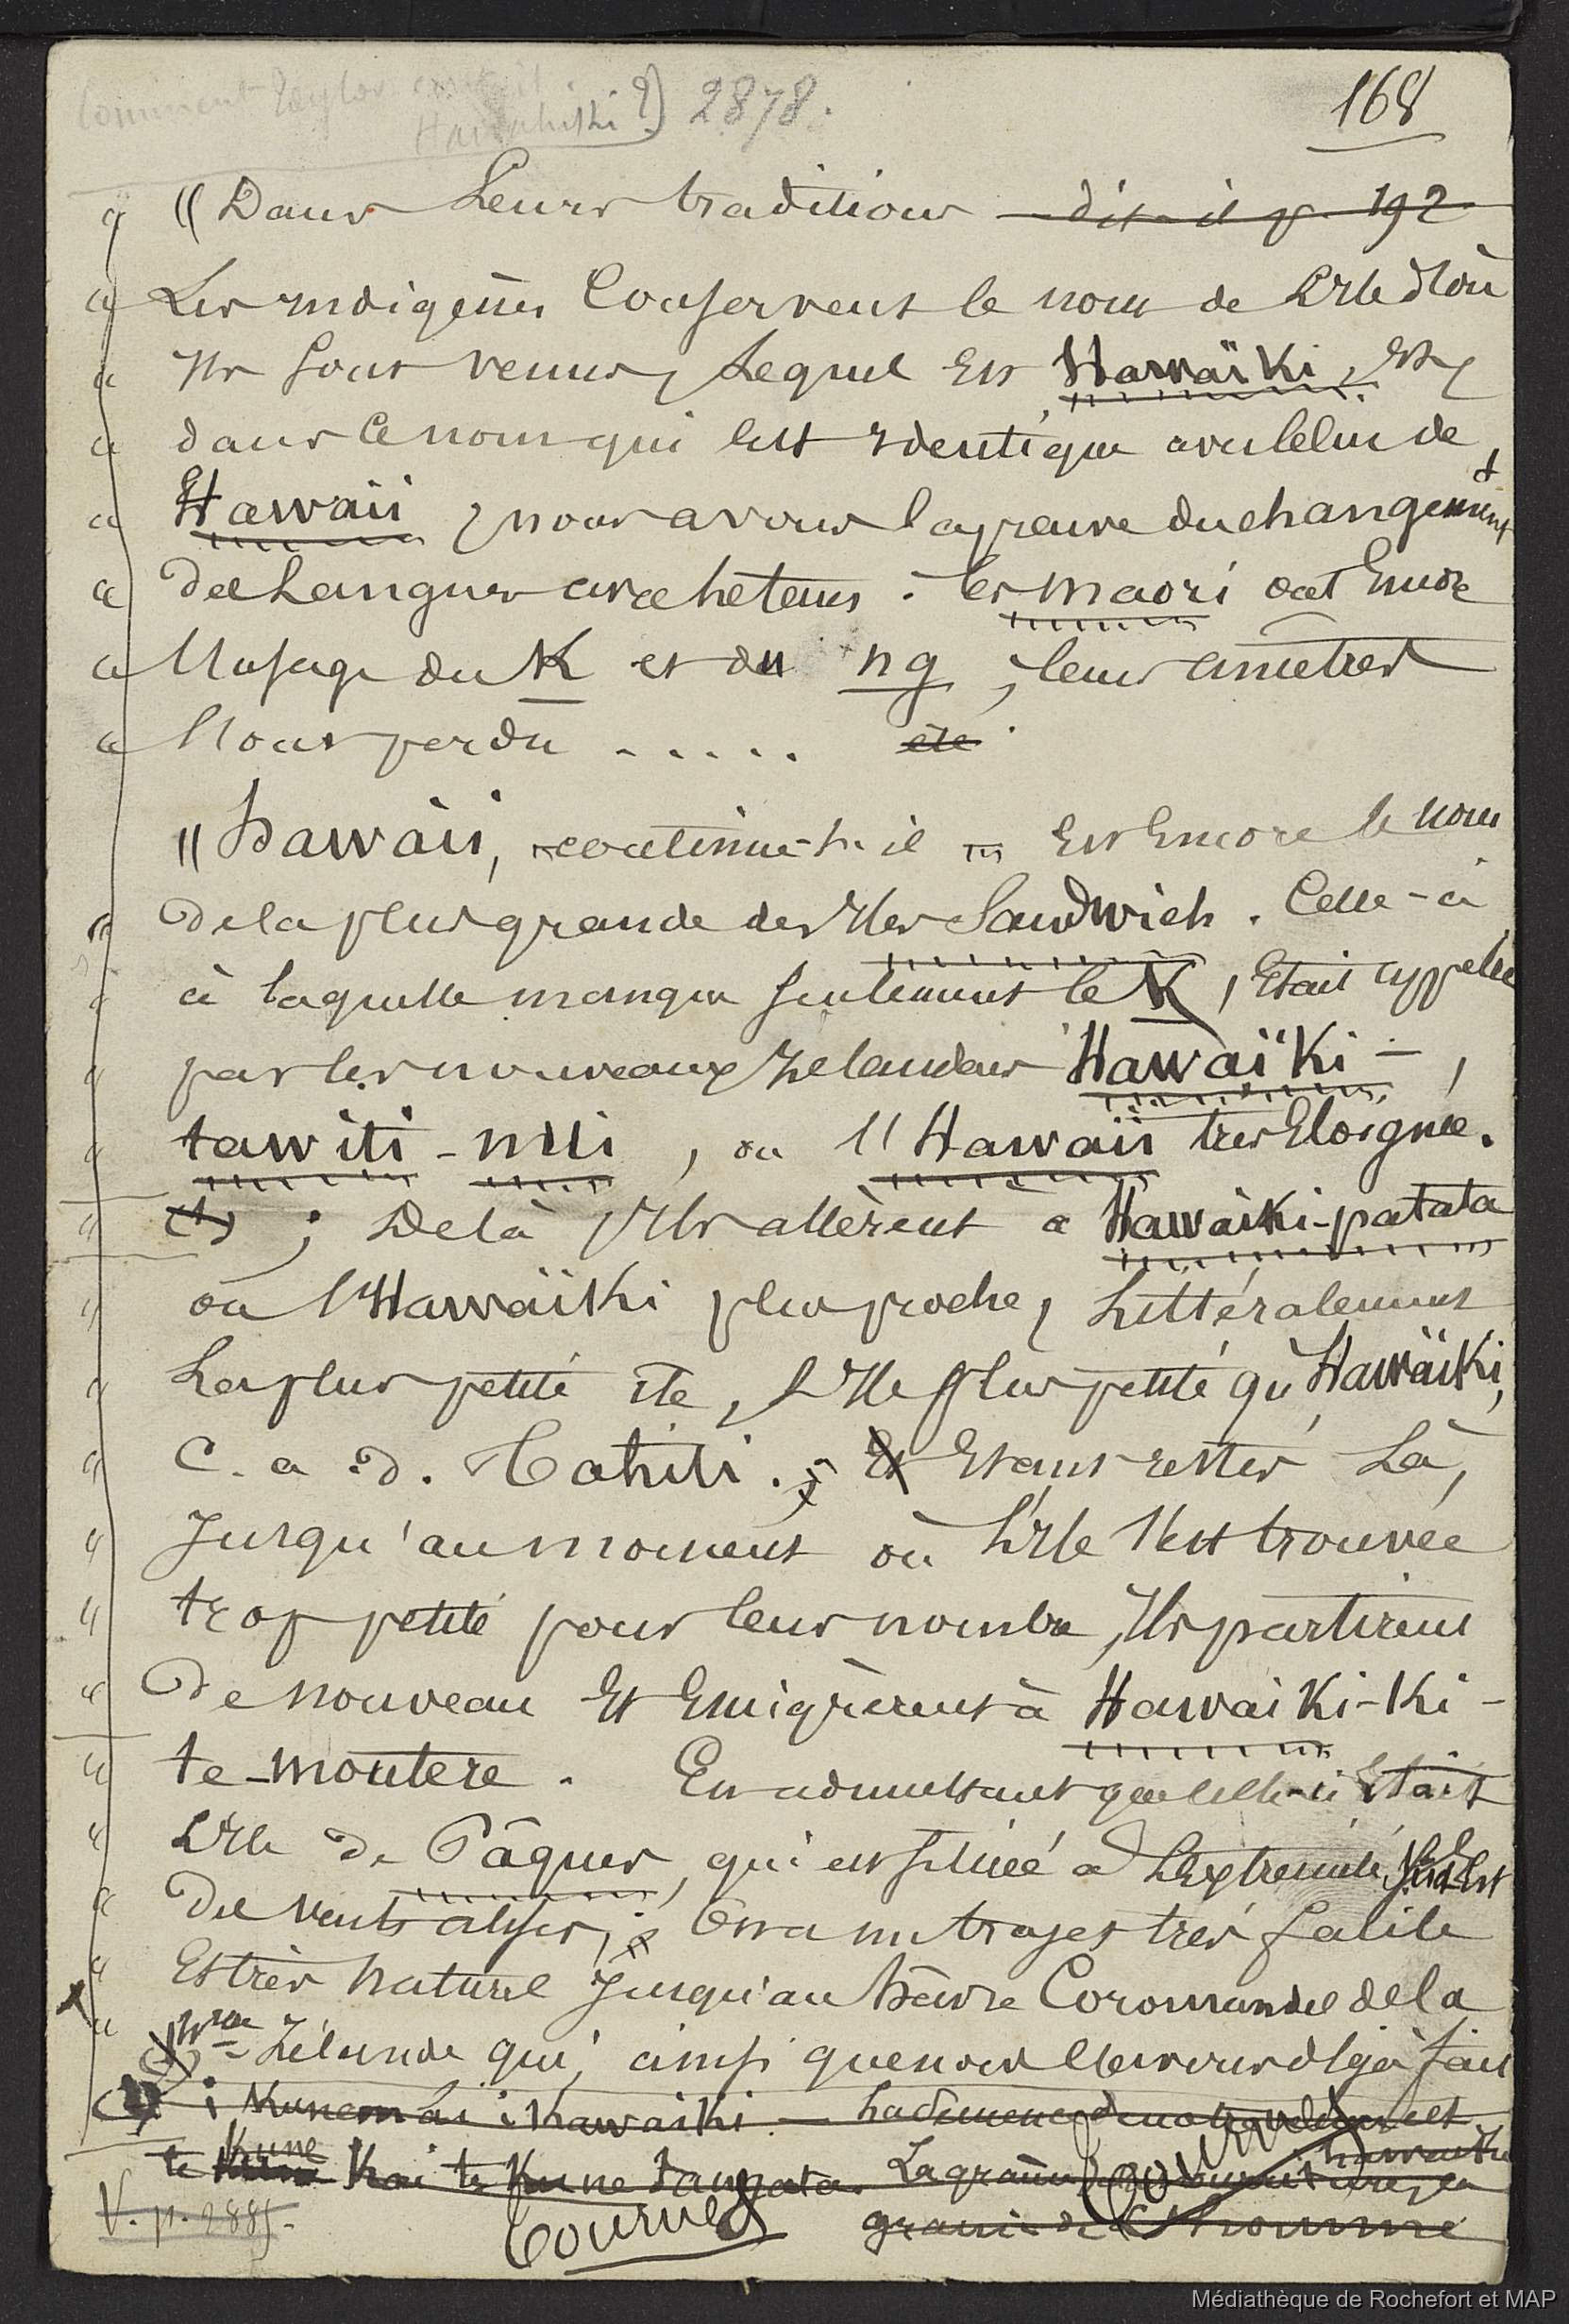 Comment Taylor écrit-il
Hawahiki ?) 2878.
168
" Dans leurs traditions — dit-il p. 192
" Les indigènes conservent le nom de l'île d'où
" ils sont venus, lequel est Hawaïki, et,
" dans ce nom qui est identique avec celui de
" Hawaii, nous avons la preuve du changement
" des langues avec le temps. les maori ont encore
" l'usage du K et du ng, leurs ancêtres
" l'ont perdu ..... été
" Hawaii, — continue-t-il — est encore le nom
" de la plus grande des îles Sandwich. Celle-ci
" à laquelle manque seulement le K, était appelée
" par les nouveaux Zélandais Hawaïki-,
" tawiti-nui, ou l'Hawaii très éloignée.
" (1) ; De là ils allèrent à Hawaïki-patata
" ou l'Hawaïki plus proche, littéralement
" la plus petite île, l'île plus petite qu'Hawaïki,
" c. a. d. Tahiti. ; Et Et ayant resté là,
" jusqu'au moment où l'île s'est trouvée
" trop petite pour leur nombre, ils partirent
" de nouveau et émigrèrent à Hawaiki-Ki-
" te-moutere. En admettant que celle-ci était
" l'île de Pâques, qui est située à l'extrémité Sud Est
" des vents alizés, ; on a un trajet très facile
" et très naturel jusqu'au hâvre Coromandel de la
" nlle-Zélande qui, ainsi que nous l'avons déjà fait
i Kune mai i hawaiki — la
te Kune Kai te Kune tangata. La graine
V. p. 2885. Tournez graine de l'homme
Tournez
Médiathèque de Rochefort et MAP